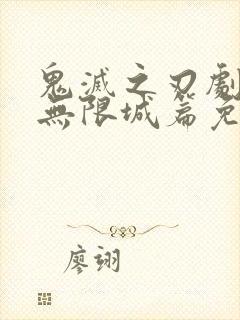 鬼滅之刃劇
無限城篇免
廖翊